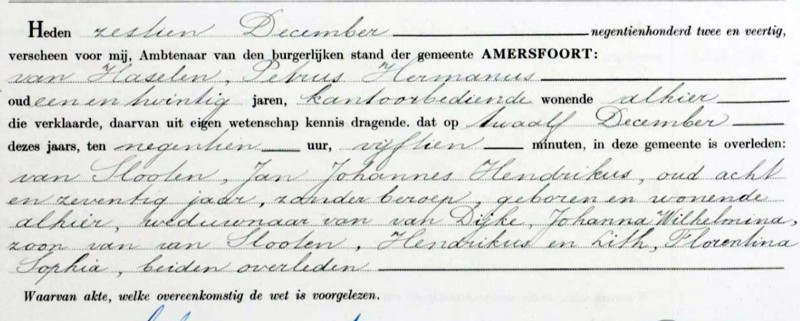 Heden zestien December negentienhonderd twee en veertig,
verscheen voor mij, Ambtenaar van den burgerlijken stand der gemeente AMERSFOORT:
van Haselen, Petrus Hermanus
oud een en twintig jaren, kantoorbediende wonende alhier
die verklaarde, daarvan uit eigen wetenschap kennis dragende, dat op twaalf December
dezes jaars, ten negentien uur, vijftien minuten, in deze gemeente is overleden:
van Slooten, Jan Johannes Hendrikus, oud acht
en zeventig jaar, zonder beroep, geboren en wonende
alhier, weduwnaar van van Dijke, Johanna Wilhelmina,
zoon van van Slooten, Hendrikus en Lith, Florentina
Sophia, beiden overleden
Waarvan akte, welke overeenkomstig de wet is voorgelezen.